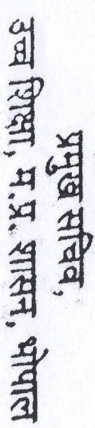 प्रमुख सचिव,
उच्च शिक्षा, म.प्र. शासन, भोपाल